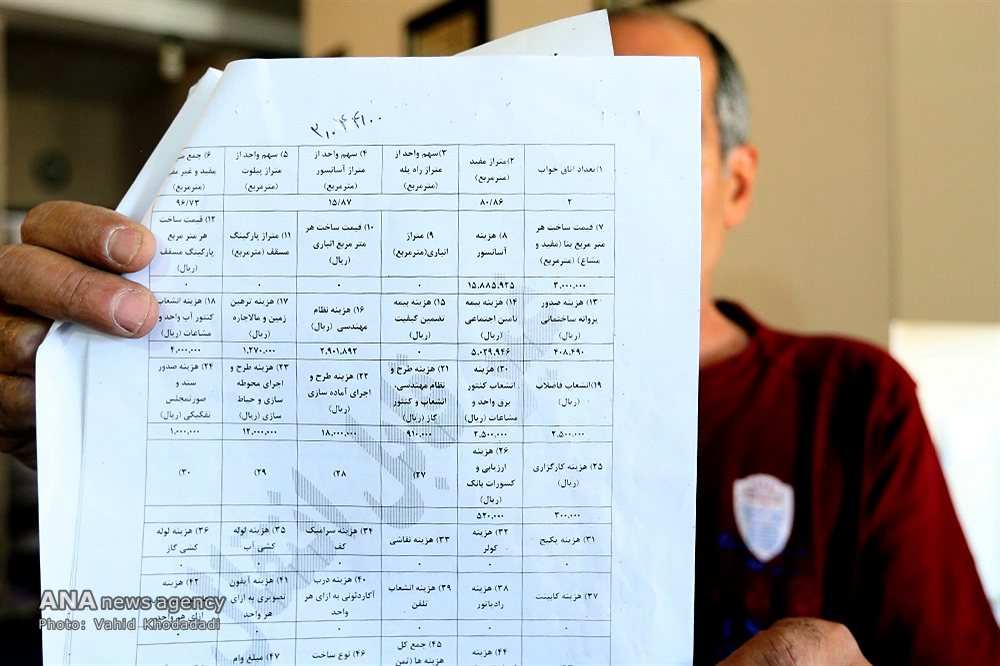 ۳۱۰۴۴۱۰۰
۱) تعداد اتاق خواب
۲) متراژ مفید (مترمربع)
۳) سهم واحد از متراژ راه پله (مترمربع)
۴) سهم واحد از متراژ آسانسور (مترمربع)
۵) سهم واحد از متراژ پیلوت (مترمربع)
۶) جمع
مفید و غیر
(مترمربع)
۲
۸۰/۸۶
۱۵/۸۷
۹۶/۷۳
۷) قیمت ساخت هر متر مربع بنا (مفید و مشاع) (مترمربع)
۸) هزینه آسانسور
۹) متراژ انباری (مترمربع)
۱۰) قیمت ساخت هر متر مربع انباری (ریال)
۱۱) متراژ پارکینگ مسقف (مترمربع)
۱۲) قیمت ساخت هر متر مربع پارکینگ مسقف (ریال)
۳,۰۰۰,۰۰۰
۱۵,۸۸۵,۹۲۵
۰
۰
۰
۰
۱۳) هزینه صدور پروانه ساختمانی (ریال)
۱۴) هزینه بیمه تامین اجتماعی (ریال)
۱۵) هزینه بیمه تضمین کیفیت (ریال)
۱۶) هزینه نظام مهندسی (ریال)
۱۷) هزینه ترهین زمین و مالاجاره (ریال)
۱۸) هزینه انشعاب کنتور آب واحد و مشاعات (ریال)
۴۰۸,۴۹۰
۵,۰۲۹,۹۴۶
۰
۲,۹۰۱,۸۹۲
۱,۲۷۰,۰۰۰
۴,۰۰۰,۰۰۰
۱۹) انشعاب فاضلاب (ریال)
۲۰) هزینه انشعاب کنتور برق واحد و مشاعات (ریال)
۲۱) هزینه طرح و نظام مهندسی، انشعاب و کنتور گاز (ریال)
۲۲) هزینه طرح و اجرای آماده سازی (ریال)
۲۳) هزینه طرح و اجرای محوطه سازی و حیاط سازی (ریال)
۲۴) هزینه صدور سند و صورتمجلس تفکیکی (ریال)
۲,۵۰۰,۰۰۰
۲,۵۰۰,۰۰۰
۹۱۰,۰۰۰
۱۸,۰۰۰,۰۰۰
۱۲,۰۰۰,۰۰۰
۱,۰۰۰,۰۰۰
۲۵) هزینه کارگزاری (ریال)
۲۶) هزینه ارزیابی و کسورات بانک (ریال)
۲۷)
۲۸)
۲۹)
۳۰)
۳۰۰,۰۰۰
۵۲۰,۰۰۰
۳۱) هزینه پکیج
۳۲) هزینه کولر
۳۳) هزینه نقاشی
۳۴) هزینه سرامیک کف
۳۵) هزینه لوله کشی آب
۳۶) هزینه لوله کشی گاز
۰
۰
۰
۰
۰
۰
۳۷) هزینه کابینت
۳۸) هزینه رادیاتور
۳۹) هزینه انشعاب تلفن
۴۰) هزینه درب آکاردئونی به ازای هر واحد
۴۱) هزینه آیفون تصویری به ازای هر واحد
۴۲) هزینه
ازای هر واحد
۰
۰
۰
۰
۰
۰
۴۴) هزینه
۴۵) جمع کل هزینه ها (ثمن
۴۶) نوع ساخت
۴۷) مبلغ وام
ANA news agency
Photo: Vahid Khodadadi